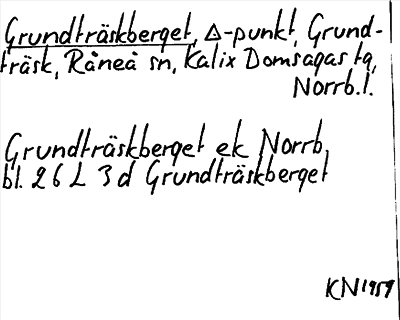 Grundträskberget, Δ-punkt, Grund-
träsk, Råneå sn, Kalix Domsagas tg,
Norrb.l.
Grundträskberget ek Norrb.
bl. 26 L 3 d Grundträskberget
KN 1959